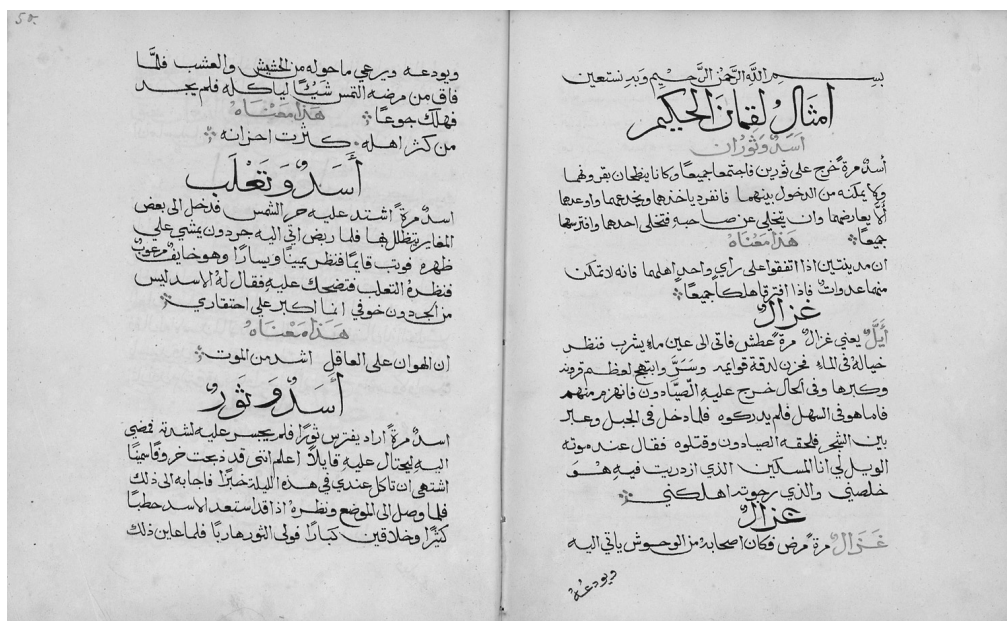 بسم الله الرحمن الرحيم وبه نستعين
امثال لقمان الحكيم
اسد وثوران
اسد مرة خرج على ثورين فاجتمعا جميعًا وكانا ينطحان بقرونهما
ولا يمكنه من الدخول بينهما فانفرد باخدهما ويخدعهما واوعدها
ألّا يعارضهما وان يتخلى عن صاحبه فتخلى احدها وافترسهما
جميعًا
هذا معناه
ان مدينتين اذا اتفقوا على راي واحد اهلهما فانه لا تمكن
منهما عدوات فاذا افترقا هلكا جميعًا
غزال
أيّل يعني غزال مرة عطش فاتى الى عين ماء يشرب فنظر
خياله في الماء فحزن لدقة قوايمه وسَرّ وابتهج لعظم قرونه
وكبرها وفي الحال خرج عليه الصيادون فانهزم منهم
فاما هو في السهل فلم يدركوه فلما دخل في الجبل وعبر
بين الشجر فلحقه الصيادون وقتلوه فقال عند موته
الويل لي انا المسكين الذي ازدريت فيه هو
خلصني والذي رجوته اهلكني
غزال
غزال مرة مرض فكان اصحابه من الوحوش ياتي اليه
ويودعه
58.
ويودعه ويرعي ما حوله من الحشيش والعشب فلمّا
فاق من مرضه التمس شيًّا لياكله فلم يجد
فهلك جوعًا هذا معناه
من كثر اهله كثرت احزانه
أسد وتعلب
اسد مرة اشتد عليه حر الشمس فدخل الى بعض
المغاير يتظلل بها فلما ربض اتى اليه جردون يمشي علي
ظهره فوتب قايمًا فنظر يمينًا ويسارًا وهو خايف مرعوب
فنظره التعلب فتضحك عليه فقال له الاسد ليس
من الجردون خوفي انما اكبر علي احتقاري
هذا معناه
ان الهوان على العاقل اشد من الموت
أسد وثور
اسد مرة اراد يفترس ثورًا فلم يجسر عليه لشدته فمضي
اليه ليحتال عليه قايلًا اعلم انني قد ذبحت خروفا سمينًا
اشتهي ان تاكل عندي في هذه الليلة خبزًا فاجابه الى ذلك
فلما وصل الى الموضع ونظره اذا قد استعد الاسد حطبًا
كثيرًا وخلاقين كبارًا فولى الثور هاربًا فلما عاين ذلك